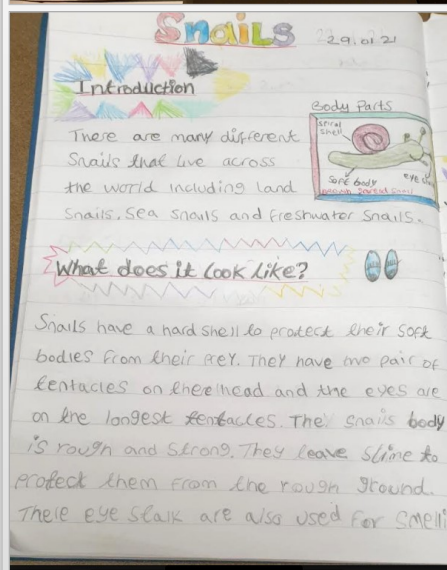 Snails
29.01.21
Introduction
Body Parts
spiral
shell
soft body
There are many different
Snails that live across
the world including land
Snails, Sea snails and freshwater snails.
What does it look like?
Snails have a hard shell to protect their soft
bodies from their prey. They have two pair of
tentacles on there head and the eyes are
on the longest tentacles. The snails body
is rough and strong. They leave slime to
protect them from the rough ground.
There eye stalk are also used for smelli